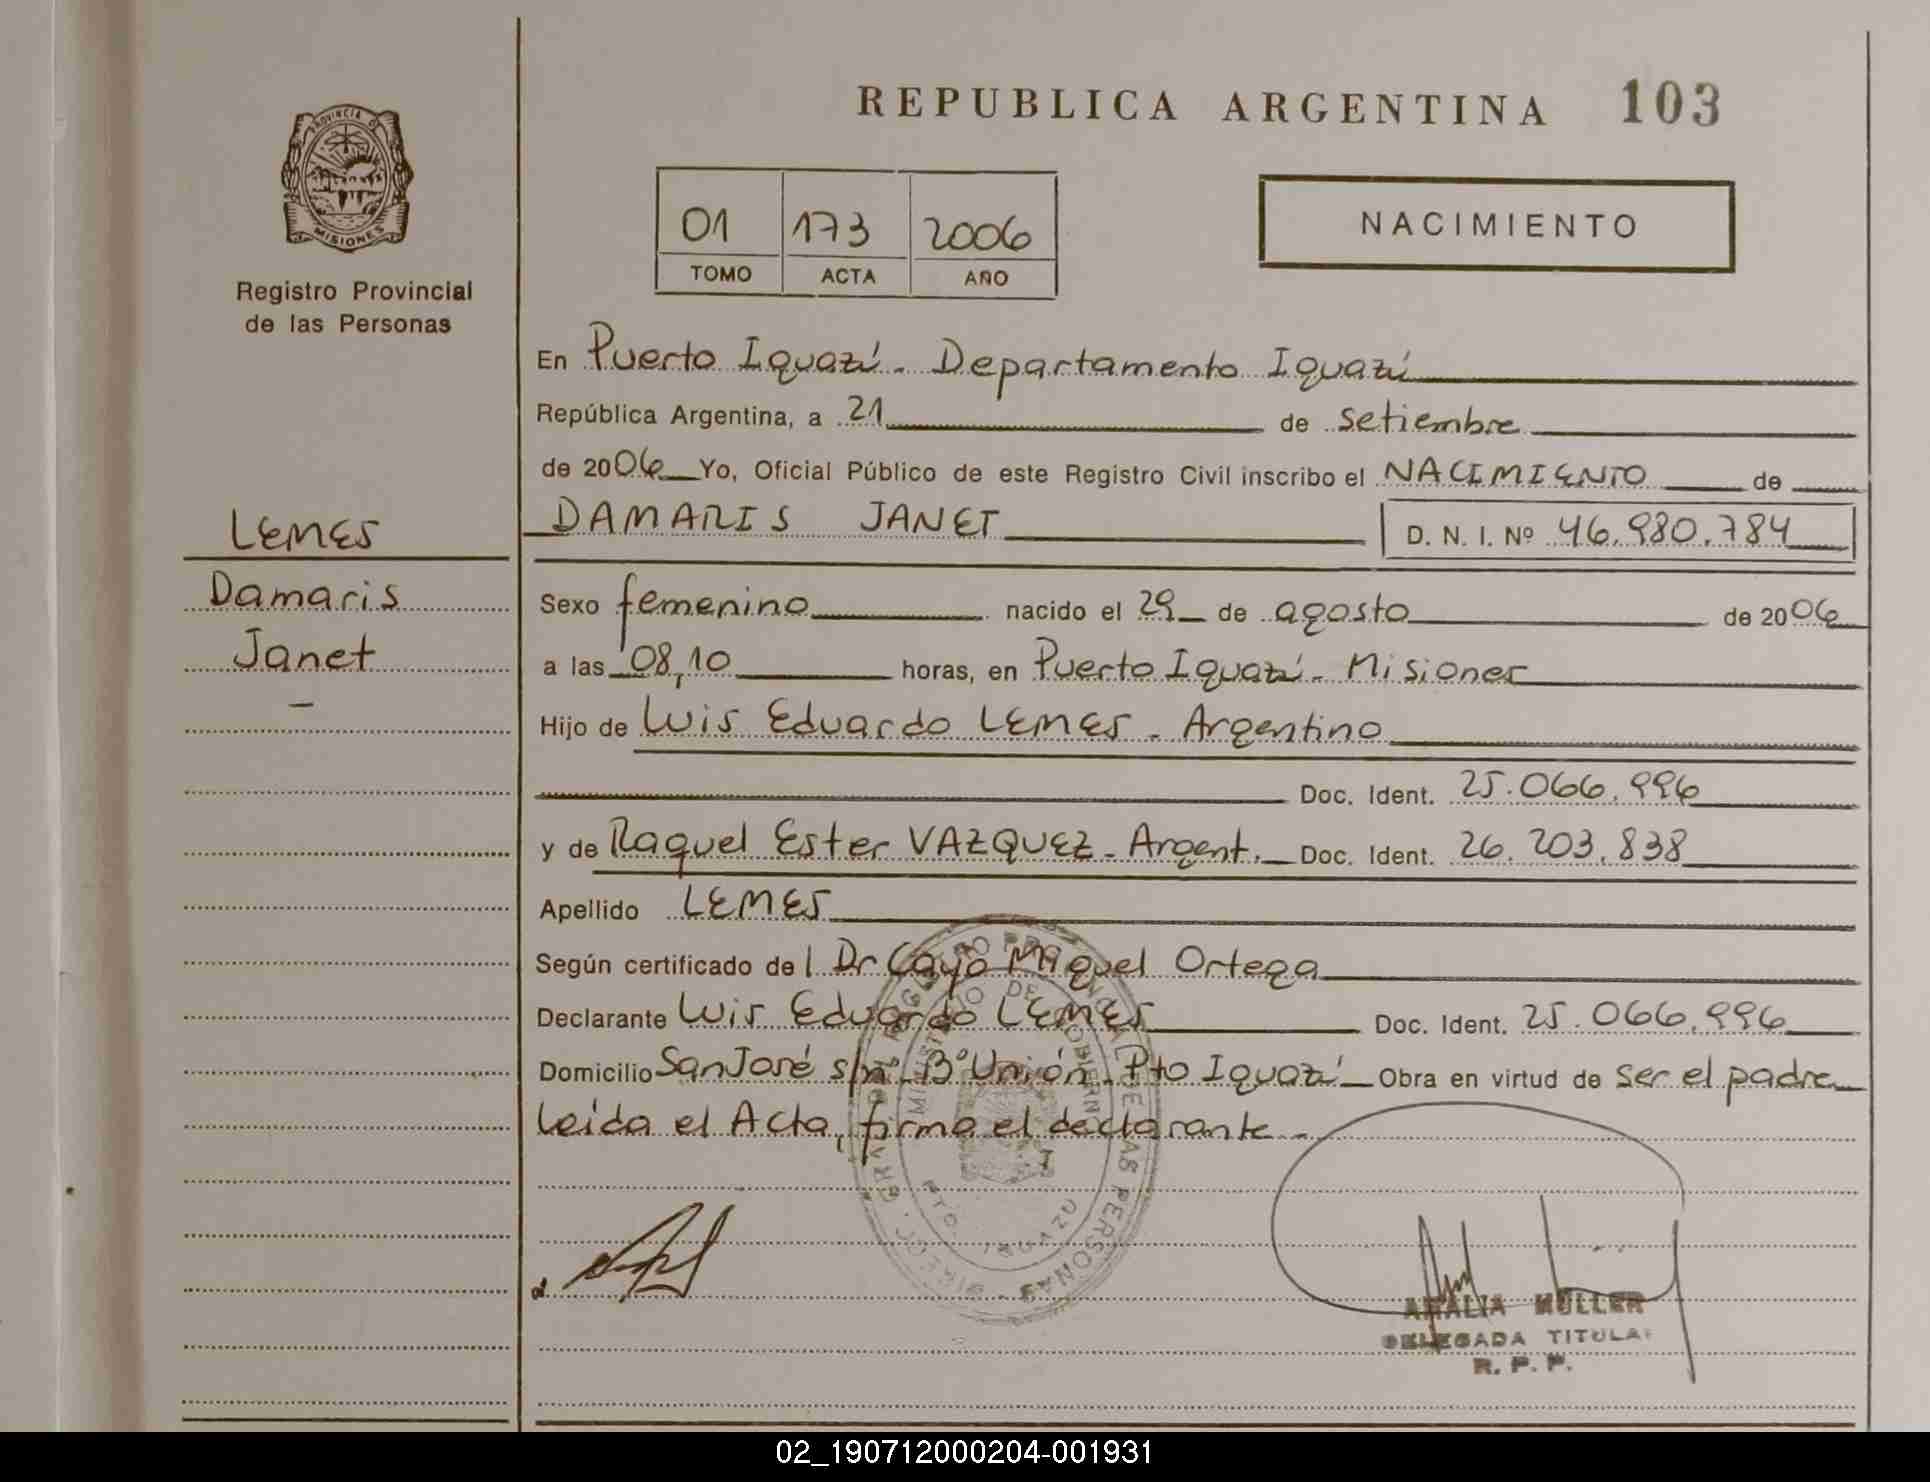 REPUBLICA ARGENTINA 103
PROVINCIA DE
MISIONES
Registro Provincial
de las Personas
01 173 2006
TOMO ACTA AÑO
NACIMIENTO
En Puerto Iguazú - Departamento Iguazú
República Argentina, a 21 de setiembre
de 2006 Yo, Oficial Público de este Registro Civil inscribo el NACIMIENTO de
LEMES
DAMARIS JANET D. N. I. Nº 46.980.784
Damaris
Sexo femenino nacido el 29 de agosto de 2006
Janet
a las 08,10 horas, en Puerto Iguazú - Misiones
Hijo de Luis Eduardo LEMES - Argentino
Doc. Ident. 25.066.996
y de Raquel Ester VAZQUEZ - Argent. Doc. Ident. 26.203.838
Apellido LEMES
Según certificado del Dr Cayo Miguel Ortega
Declarante Luis Eduardo LEMES Doc. Ident. 25.066.996
Domicilio San José s/nº - Bº Unión - Pto Iguazú Obra en virtud de ser el padre
Leída el Acta, firma el declarante -
PTO. IGUAZU
AMALIA MULLER
DELEGADA TITULAR
R. P. P.
02_190712000204-001931